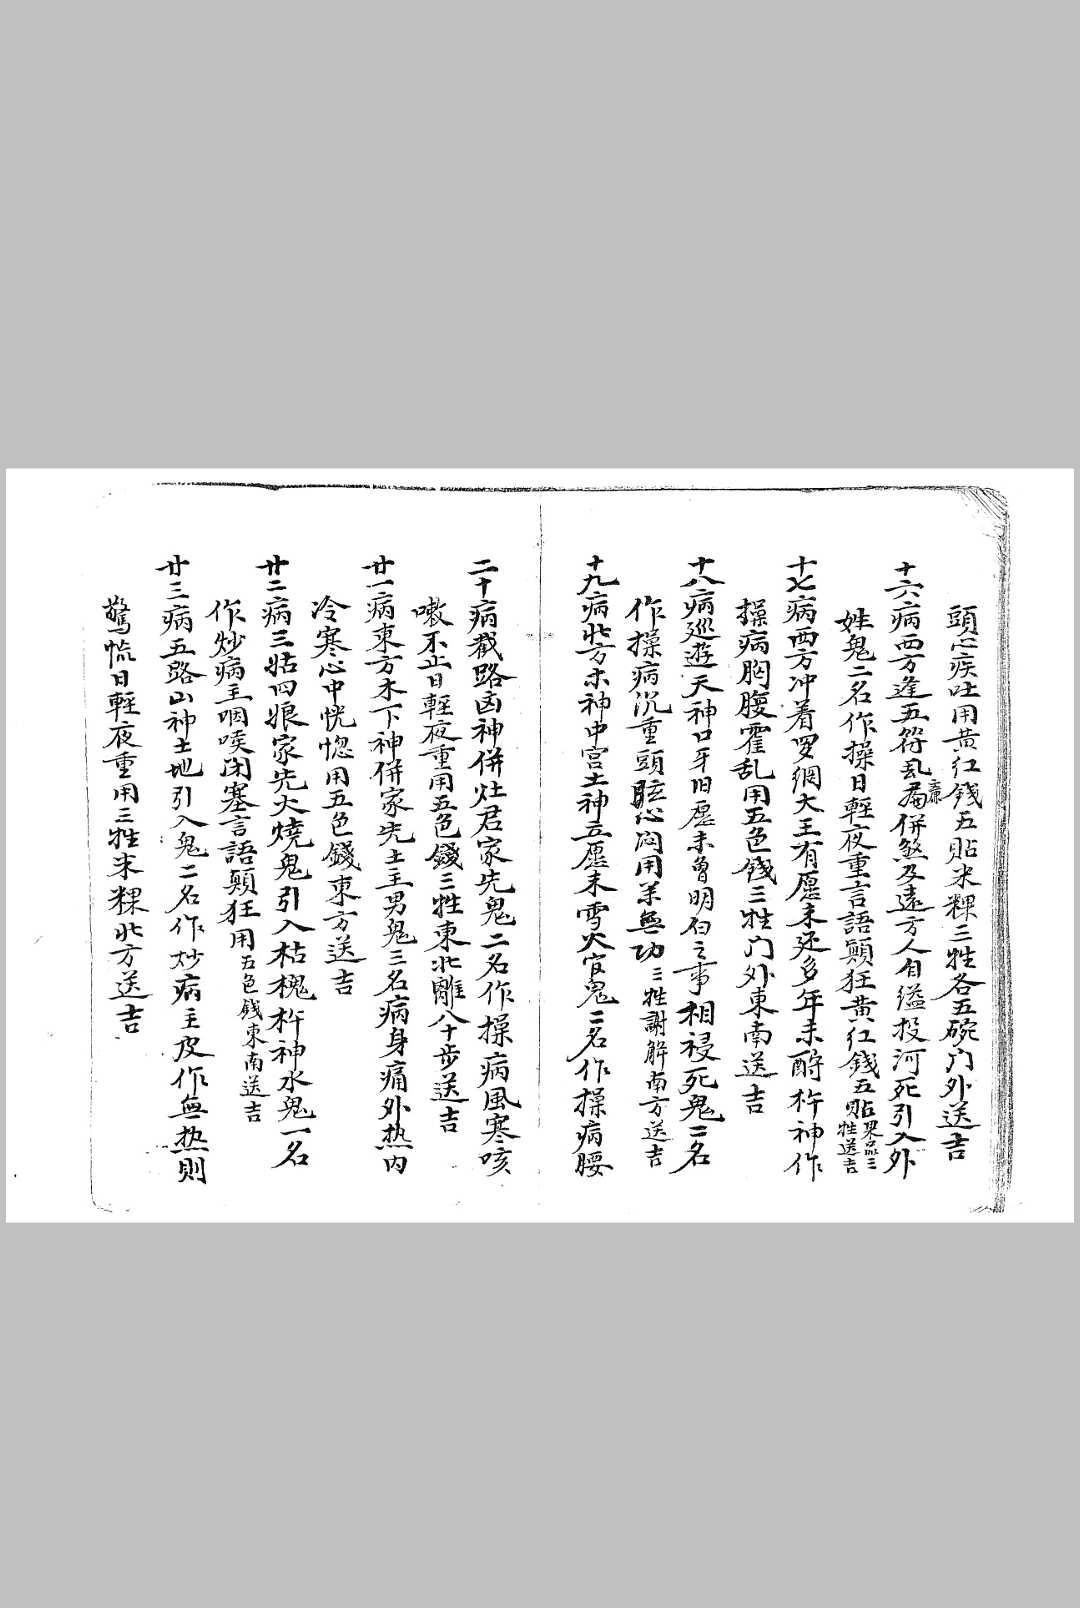 頭心疾吐用黄红錢五贴米粿三牲各五碗门外送吉
十六病西方逢五符乱為併煞及遠方人自缢投河死引入外
姓鬼二名作操日輕夜重言語顛狂黄红錢五贴果品三牲送吉
十七病西方冲着罗網大王有愿未还多年未酹杵神作
操病胸腹霍乱用五色钱三牲门外東南送吉
十八病巡遊天神口牙旧愿未曾明白之事相祲死鬼二名
作操病沉重頭眩心闷用羊無功三牲謝解南方送吉
十九病北方木神中宫土神立愿未雪火官鬼二名作操病腰
二十病截路凶神併灶君家先鬼二名作操病風寒咳
嗽不止日輕夜重用五色錢三牲東北離八十步送吉
廿一病東方木下神併家先土主男鬼三名病身痛外热内
冷寒心中恍惚用五色錢東方送吉
廿二病三姑四娘家先火燒鬼引入枯槐杵神水鬼一名
作炒病主咽喉闭塞言語顛狂用五色錢東南送吉
廿三病五路山神土地引入鬼二名作炒病主皮作無热則
驚慌日輕夜重用三牲米粿北方送吉